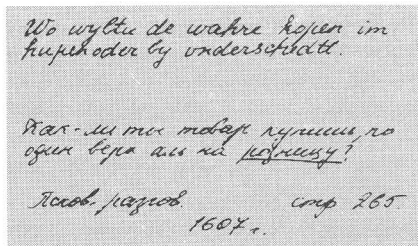 Wo wyltu de wahre kopen im
hupenoder by vnderschedtl.
Как-ли ты товар купишь, по
один верх аль на розницу?
Псков. разгов. стр 265
1607 г.